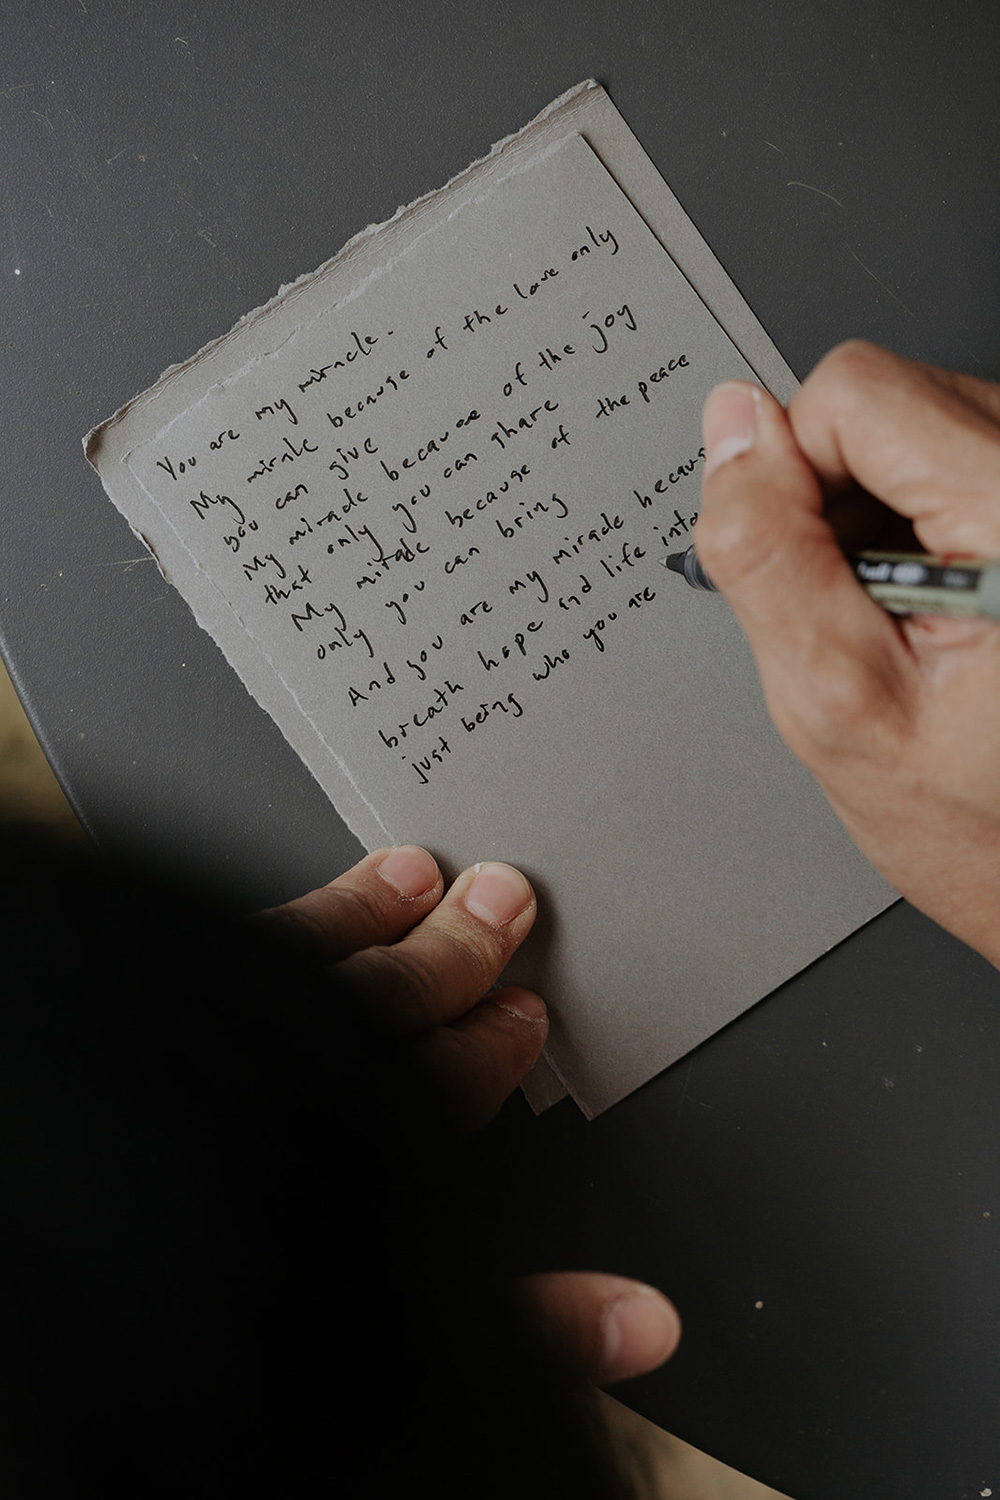 You are my miracle.
My miracle because of the love only
you can give
My miracle because of the joy
that only you can share
My miracle because of the peace
only you can bring
And you are my miracle becaus
breath hope and life into
just being who you are